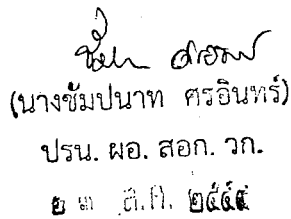 (นางชัมปนาท ศรอินทร์)
ปรน. ผอ. สอก. วก.
๒๓ ส.ค. ๒๕๔๕